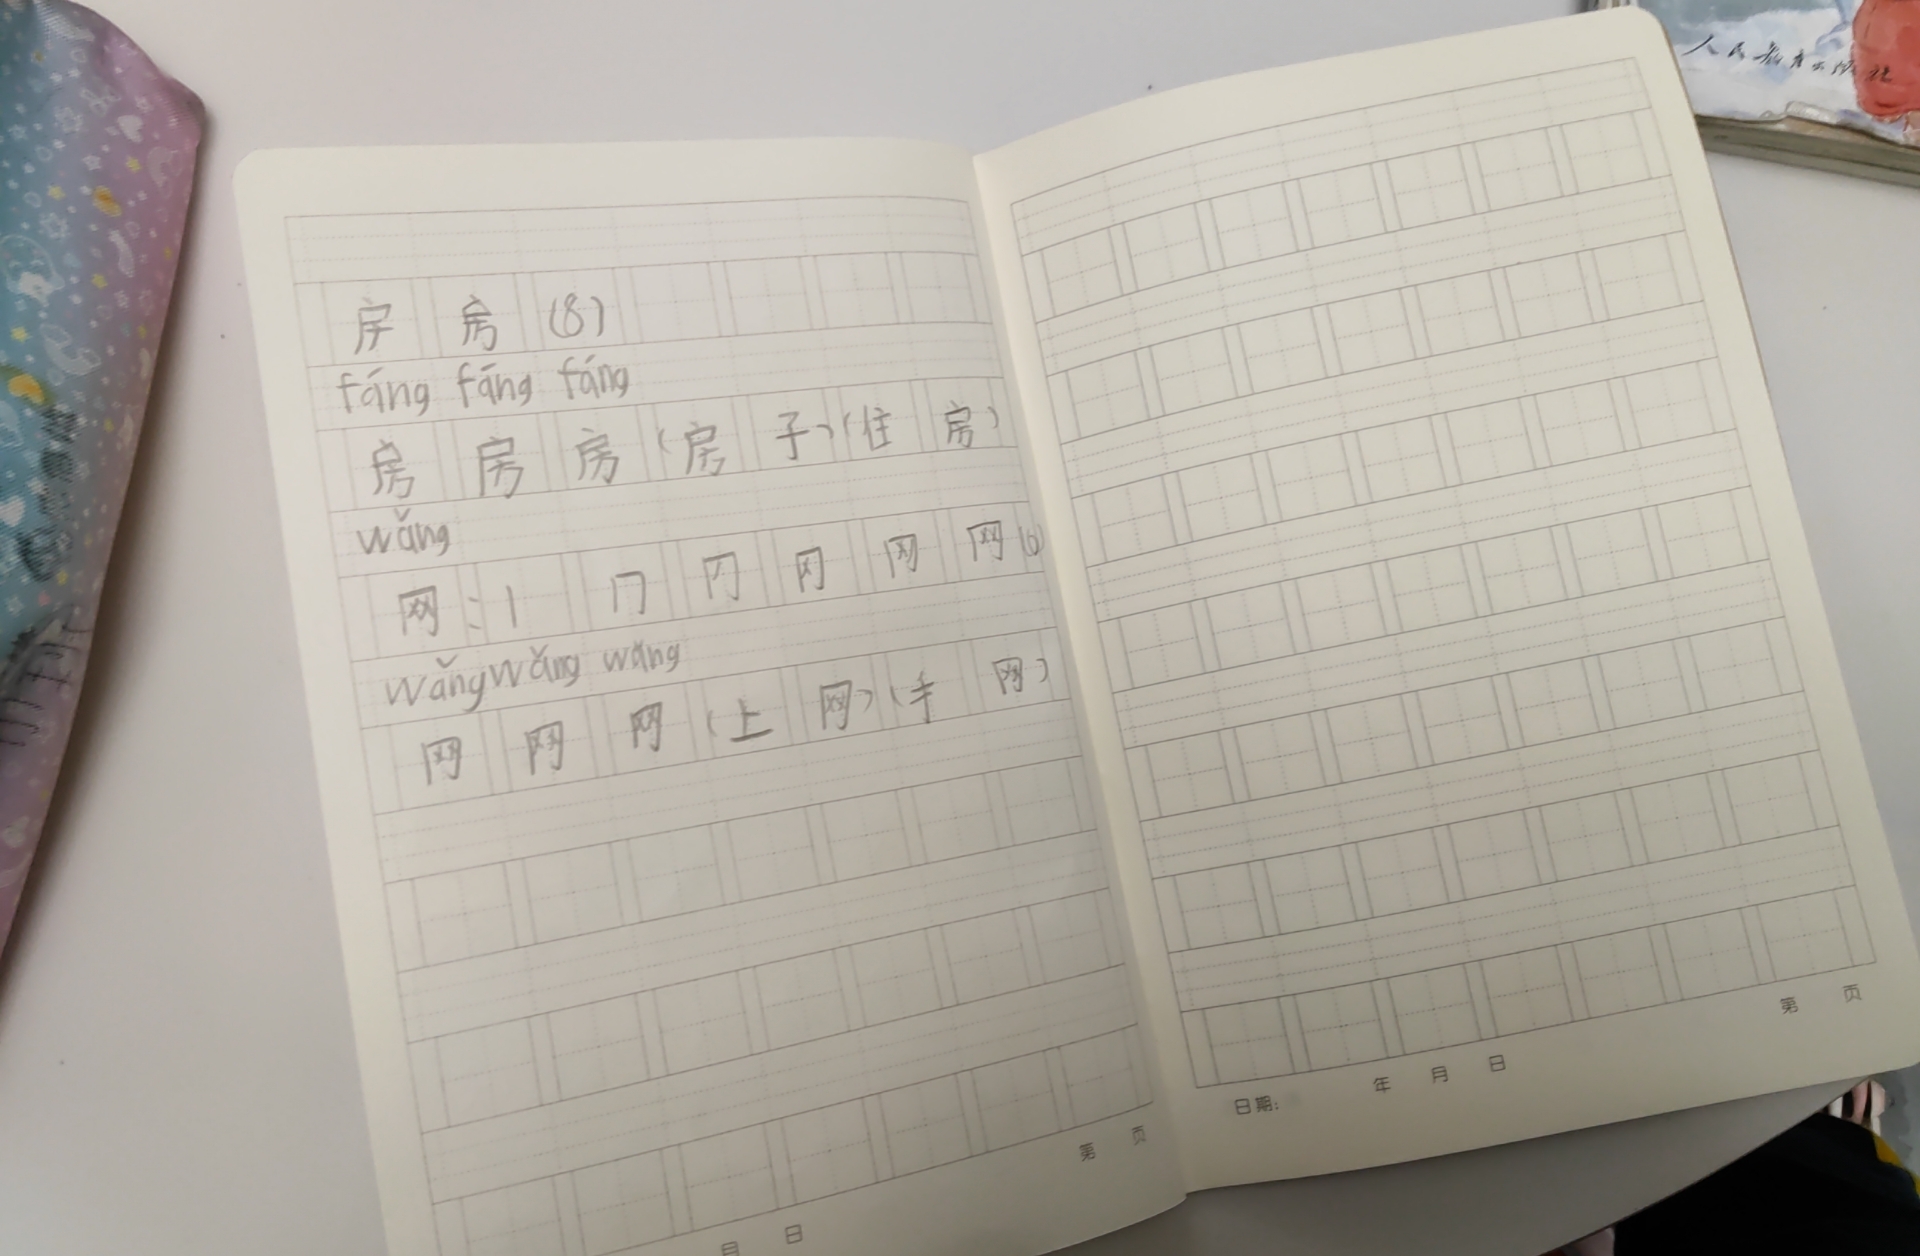 人民教育出版社
房 (8)
fáng fáng fáng
房 房 房 (房 子) (住 房)
wǎng
网 : 丨 冂 网 (6)
wǎng wǎng wǎng
网 网 网 (上 网) (手 网)
第 页
月 日
第 页
日期: 年 月 日